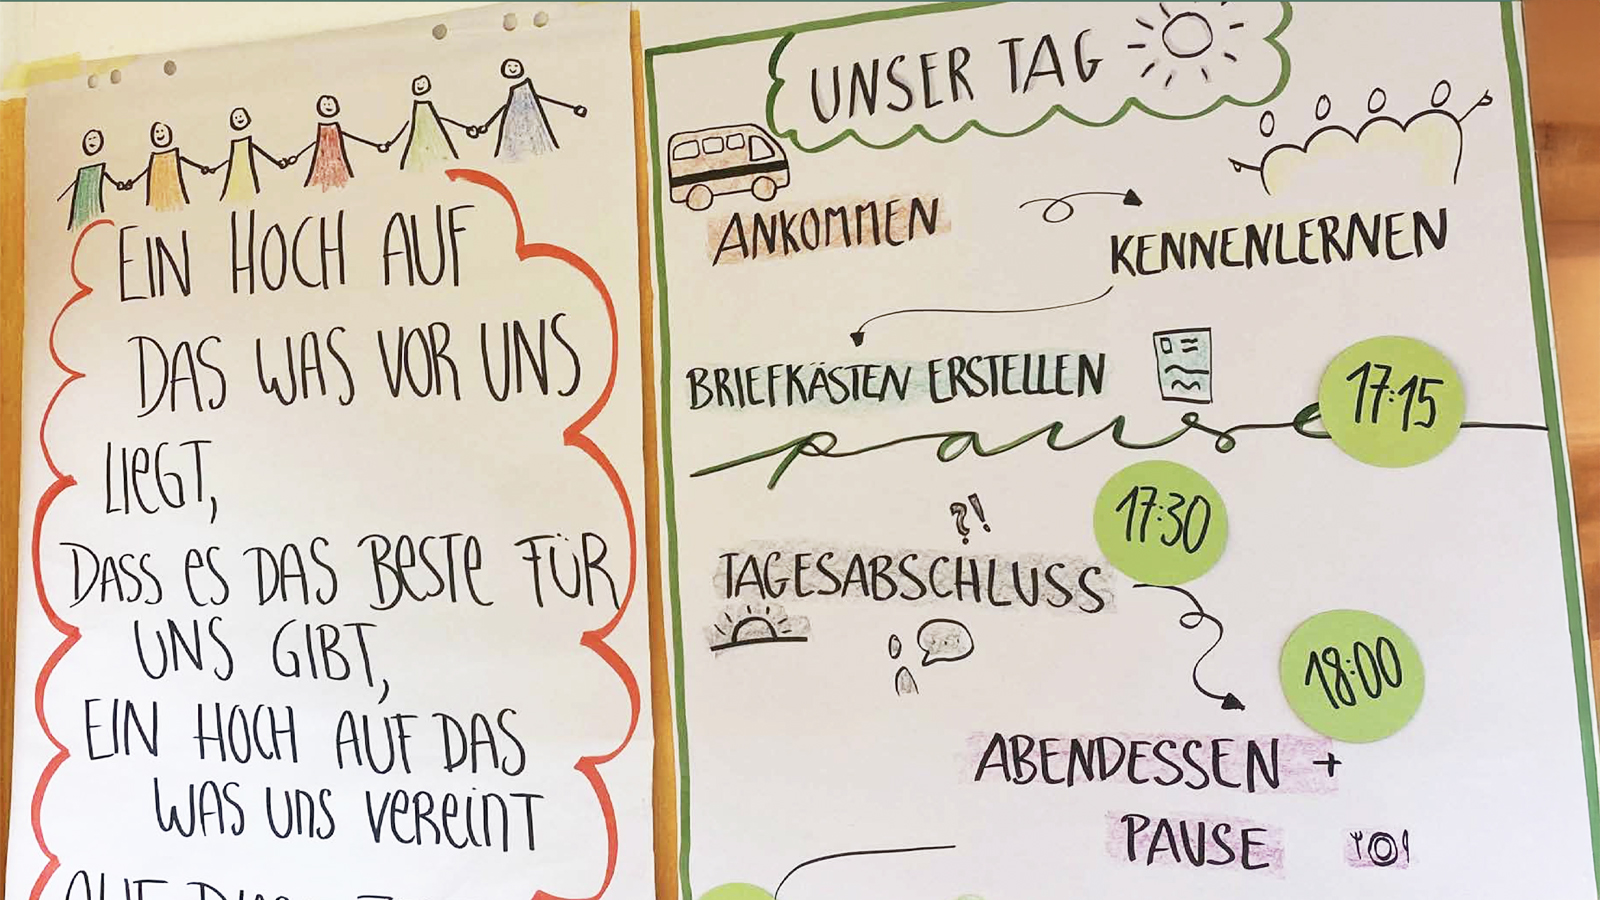 EIN HOCH AUF
DAS WAS VOR UNS
LIEGT,
DASS ES DAS BESTE FÜR
UNS GIBT,
EIN HOCH AUF DAS
WAS UNS VEREINT
UNSER TAG
ANKOMMEN
KENNENLERNEN
BRIEFKÄSTEN ERSTELLEN
pause
17:15
17:30
?!
TAGESABSCHLUSS
18:00
ABENDESSEN +
PAUSE